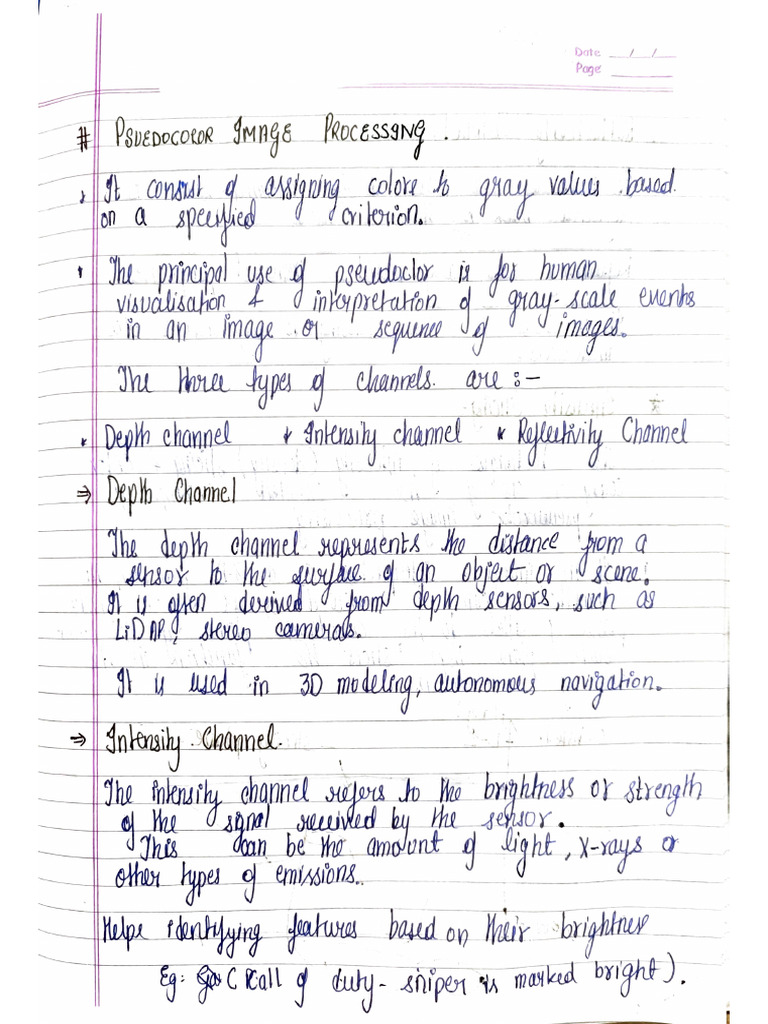 Date __/__/__
Page ______
# PSUEDOCOLOR IMAGE PROCESSING.
* It consist of assigning colore to gray values based
on a specified criterion.
* The principal use of pseudoclor is for human
visualisation & interpretation of gray-scale events
in an image or sequence of images.
The three types of channels are :-
* Depth channel * Intensity channel * Reflectivity Channel
⇒ Depth Channel
The depth channel represents the distance from a
sensor to the surface of an object or scene.
It is often derived from depth sensors, such as
LiDAR, stereo cameras.
It is used in 3D modeling, autonomous navigation.
⇒ Intensity Channel.
The intensity channel refers to the brightness or strength
of the signal received by the sensor.
This can be the amount of light, X-rays or
other types of emissions.
Helps identifying features based on their brightness
Eg: (Call of duty - sniper is marked bright).